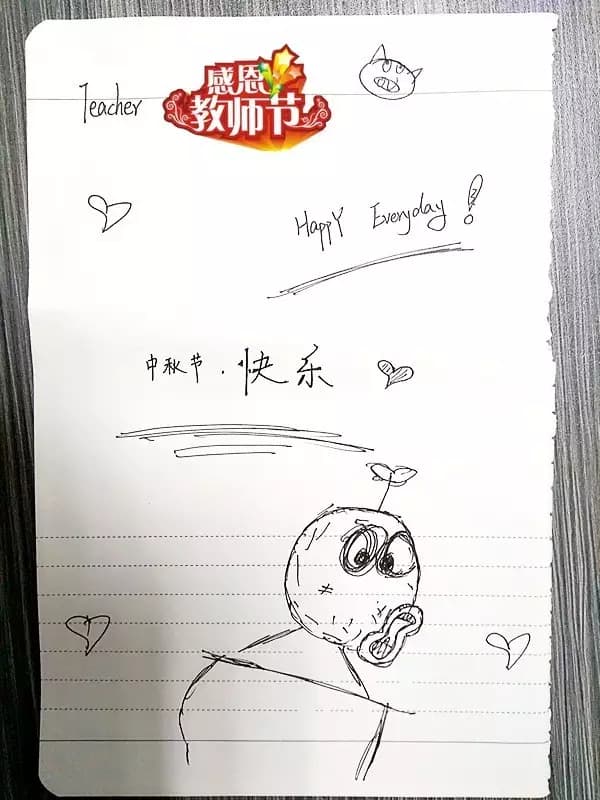 感恩
Teacher 教师节!
Happy Everyday!
中秋节.快乐